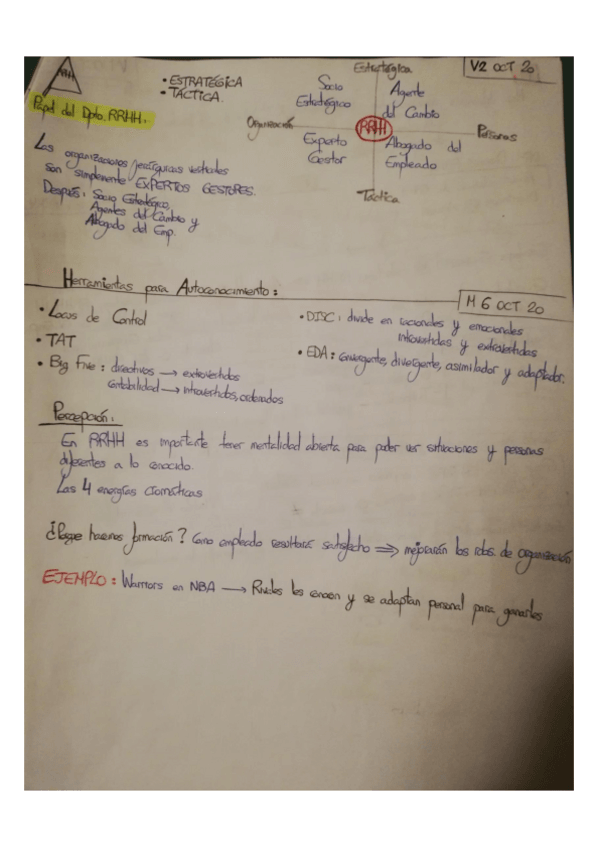 RRHH
• ESTRATÉGICA
• TÁCTICA.
V2 OCT 20
Papel del Dpto. RRHH.
Estratégica
Socio Estratégico
Agente del Cambio
Organización
RRHH
Personas
Experto Gestor
Abogado del Empleado
Táctica
Las organizaciones jerárquicas verticales
son simplemente EXPERTOS GESTORES.
Después: Socio Estratégico,
Agentes del Cambio y
Abogado del Emp.
Herramientas para Autoconocimiento:
M 6 OCT 20
• Locus de Control
• TAT
• Big Five: directivos → extrovertidos
contabilidad → introvertidos, ordenados
• DISC: divide en racionales y emocionales
introvertidas y extrovertidas
• EDA: convergente, divergente, asimilador y adaptador.
Percepción:
En RRHH es importante tener mentalidad abierta para poder ver situaciones y personas
diferentes a lo conocido.
Las 4 energías cromáticas
hacemos formación? Como empleado resultará satisfecho ⟹ mejorarán los rdos. de organización
EJEMPLO: Warriors en NBA → Rivales les conocen y se adaptan personal para ganarles